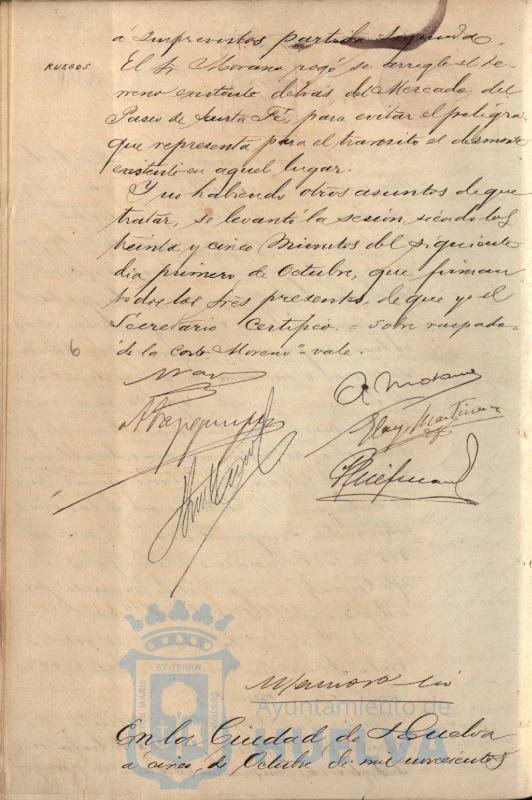 á Imprevistos partida segunda.
RUEGOS
El Sr. Moreno rogó se arregle el te-
rreno existente detrás del Mercado del
Paseo de Santa Fé, para evitar el peligro,
que representa para el transito el desmonte
existente en aquel lugar.
Y no habiendo otros asuntos de que
tratar, se levantó la sesión, siendo las
treinta y cinco minutos del siguiente
dia primero de Octubre, que firman
todos los Sres presentes, de que yo el
Secretario Certifico. = Sobre raspado=
"de la Corte Moreno"= vale.
6
A Moreno
Eloy Martinez
ET TERRÆ
MARIS
CUSTOS
Ayuntamiento de
HUELVA
En la Ciudad de Huelva
á cinco de Octubre de mil novecientos